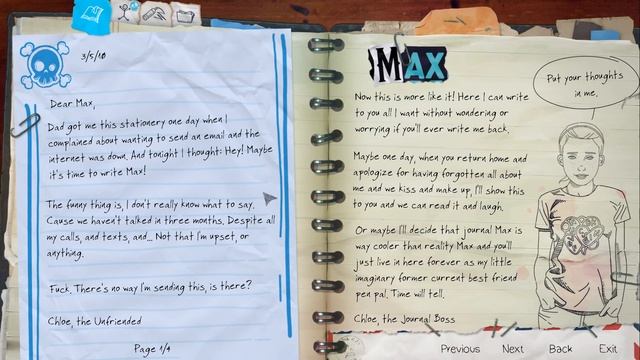 3/5/10
Dear Max,
Dad got me this stationery one day when I
complained about wanting to send an email and the
internet was down. And tonight I thought: Hey! Maybe
it's time to write Max!
The funny thing is, I don't really know what to say.
Cause we haven't talked in three months. Despite all
my calls, and texts, and... Not that I'm upset, or
anything.
Fuck. There's no way I'm sending this, is there?
Chloe, the Unfriended
Page 1/4
MAX
Now this is more like it! Here I can write
to you all I want without wondering or
worrying if you'll ever write me back.
Maybe one day, when you return home and
apologize for having forgotten all about
me and we kiss and make up, I'll show this
to you and we can read it and laugh.
Or maybe I'll decide that journal Max is
way cooler than reality Max and you'll
just live in here forever as my little
imaginary former current best friend
pen pal. Time will tell.
Chloe, the Journal Boss
Put your thoughts
in me.
Previous Next Back Exit